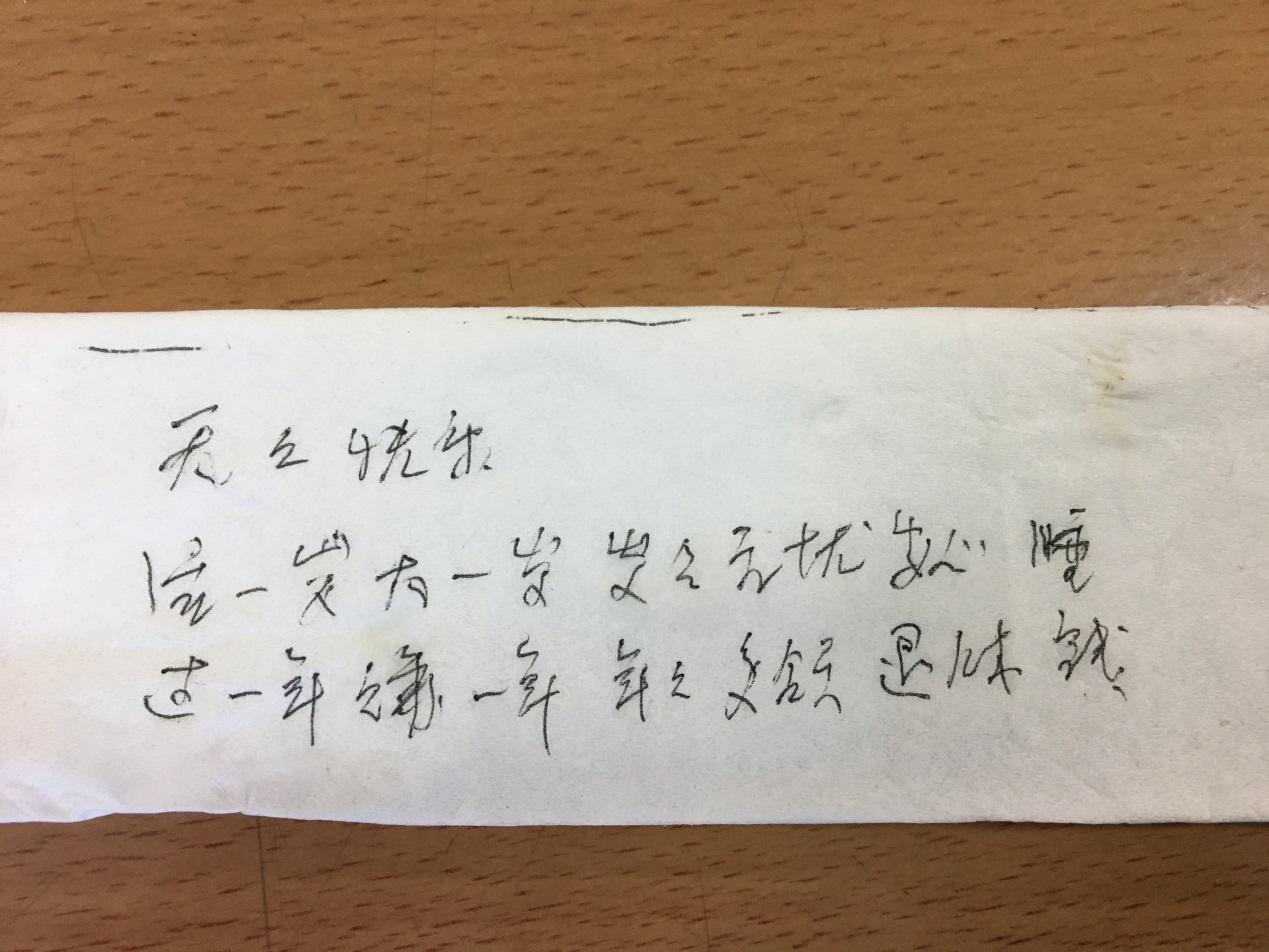 天々快乐
活一岁大一岁岁々无忧安心睡
过一年赚一年年々多领退休钱